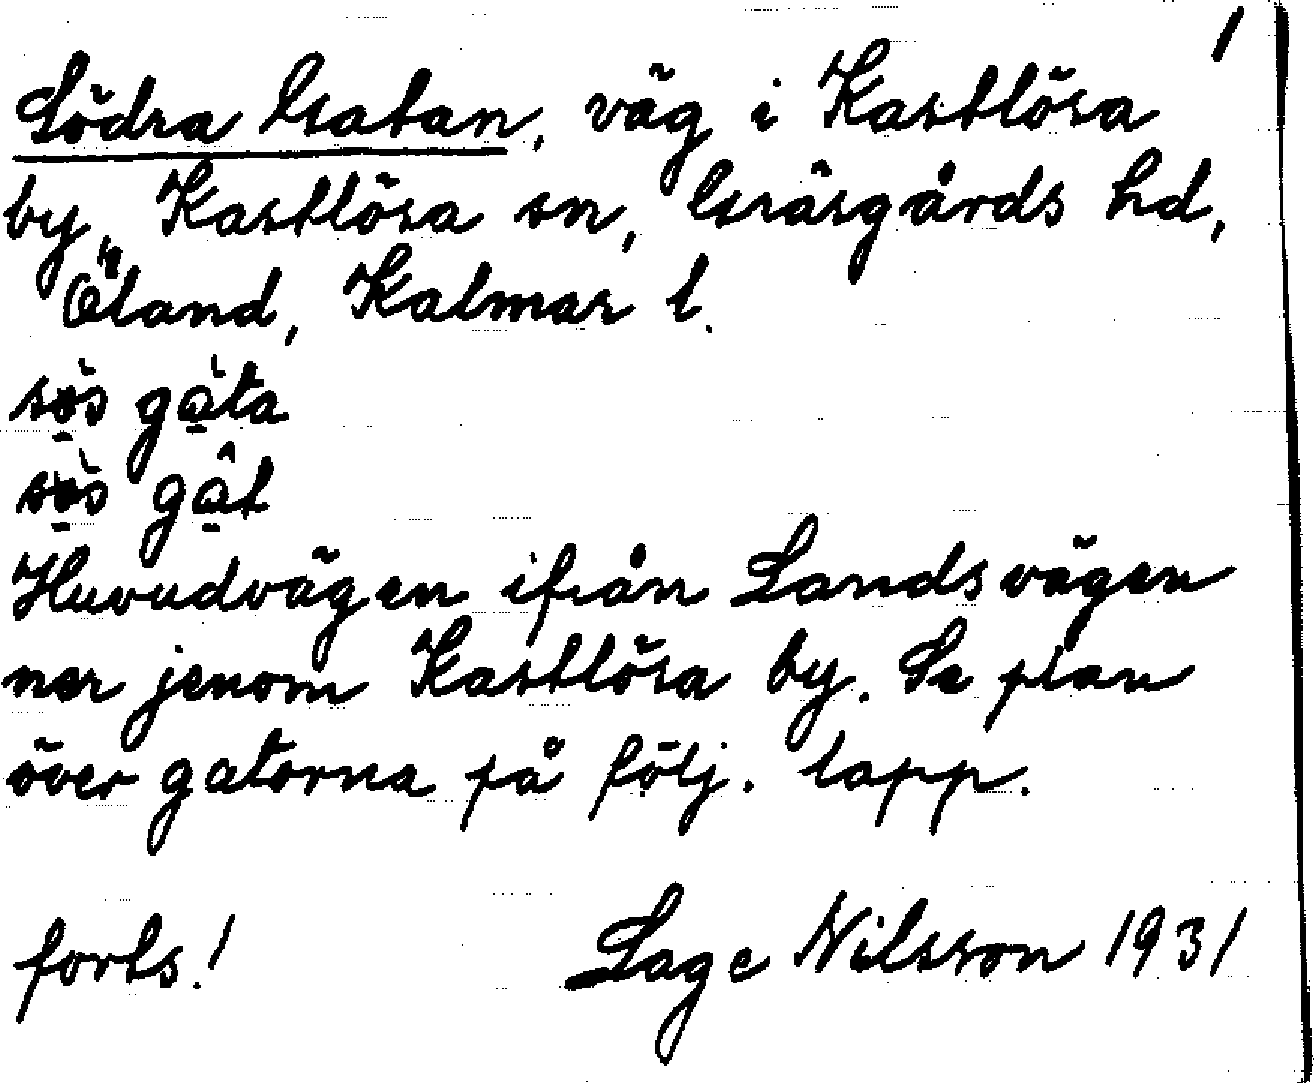 1
Södra Gatan, väg i Kastlösa
by, Kastlösa sn, Gräsgårds hd,
Öland, Kalmar l.
sò̱s gà̱ta
sò̱s gâ̱t
Huvudvägen ifrån Landsvägen
ner jenom Kastlösa by. Se plan
över gatorna på följ. lapp.
forts! Lage Nilsson 1931